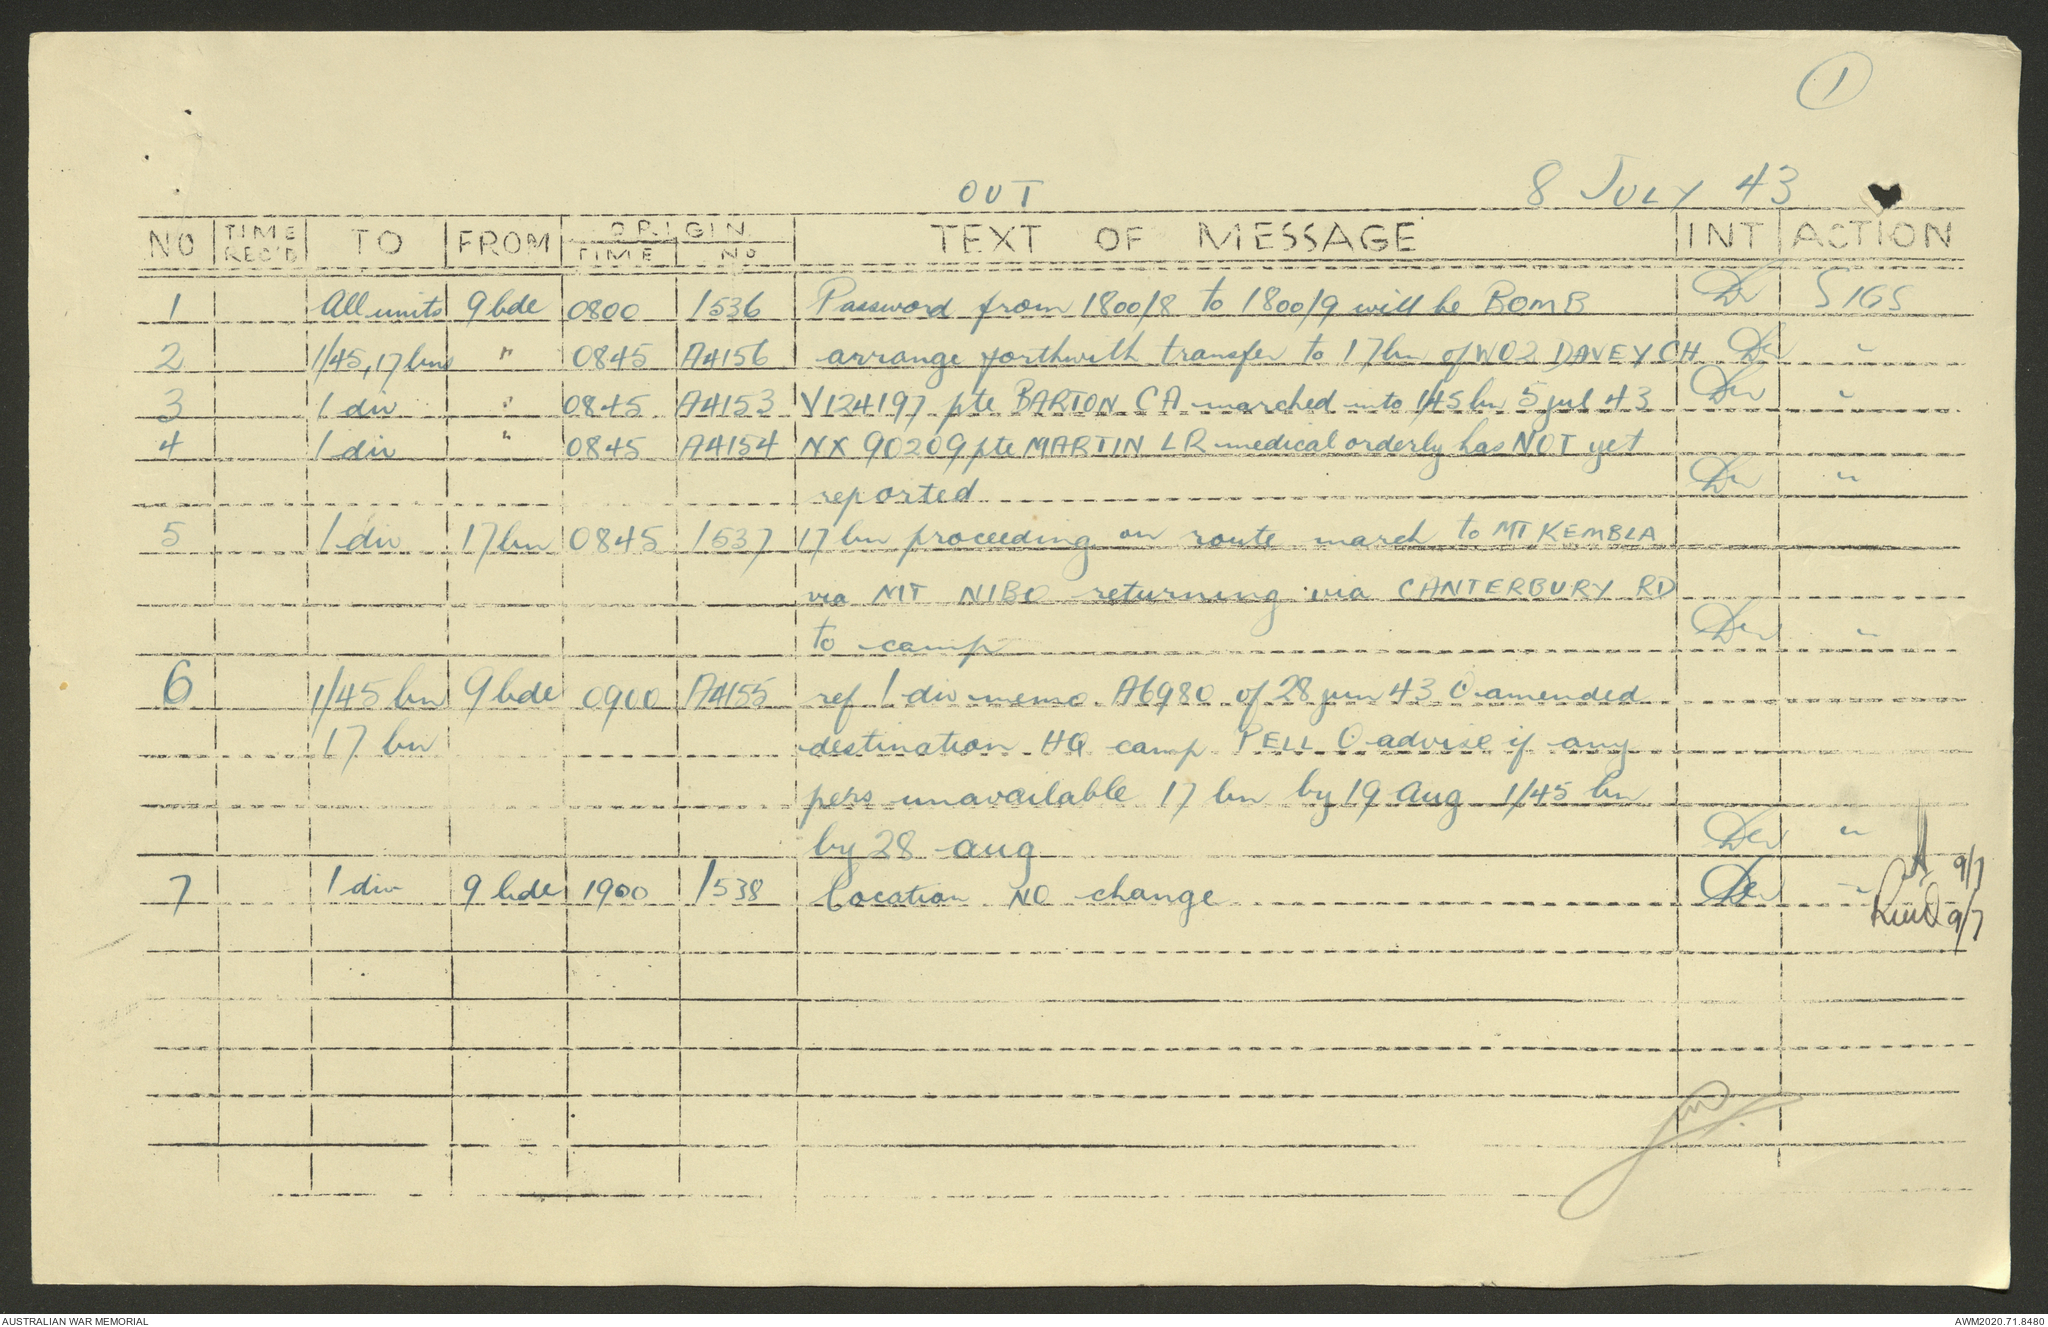 1
OUT 8 JULY 43
NO TIME REC'D TO FROM ORIGIN TIME NO TEXT OF MESSAGE INT ACTION
1 All units 9 bde 0800 1536 Password from 1800/8 to 1800/9 will be BOMB SIGS
2 1/45, 17 bns " 0845 A4156 arrange forthwith transfer to 17 bn of WO2 DAVEY CH "
3 1 div " 0845 A4153 V124197 pte BARTON CA marched into 1/45 bn 5 jul 43 "
4 1 div " 0845 A4154 NX 90209 pte MARTIN LR medical orderly has NOT yet
reported "
5 1 div 17 bn 0845 1537 17 bn proceeding on route march to MT KEMBLA
via MT NIBO returning via CANTERBURY RD
to camp "
6 1/45 bn 9 bde 0900 A4155 ref 1 div memo A6980 of 28 jun 43 O amended
17 bn destination HQ camp PELL O advise if any
pers unavailable 17 bn by 19 Aug 1/45 bn
by 28 aug "
7 1 div 9 bde 1900 1538 Location NO change "
9/7
9/7
AUSTRALIAN WAR MEMORIAL AWM2020.71.8480